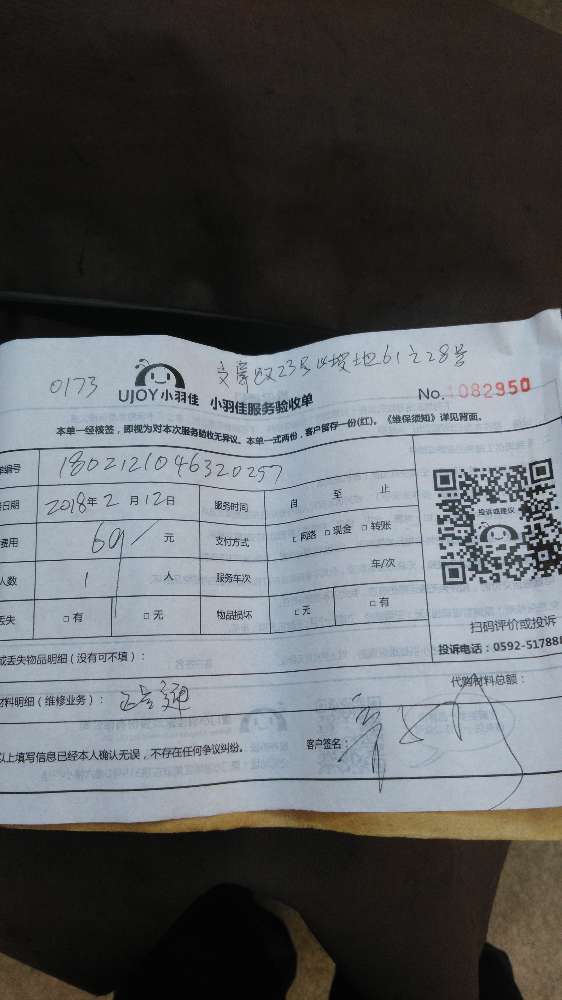 0173
UJOY小羽佳 小羽佳服务验收单 No.1082950
本单一经核签，即视为对本次服务验收无异议。本单一式两份，客户留存一份(红)。《维保须知》详见背面。
编号 1802121046320257
日期 2018年2月12日 服务时间 自 至 止
费用 69/ 元 支付方式 网络 □现金 □转账
人数 1 人 服务车次 车/次
丢失 □有 □无 物品损坏 无 □有
投诉或建议
扫码评价或投诉
投诉电话：0592-517888
或丢失物品明细（没有可不填）：
材料明细（维修业务）： 代购材料总额：
以上填写信息已经本人确认无误，不存在任何争议纠纷。 客户签名：